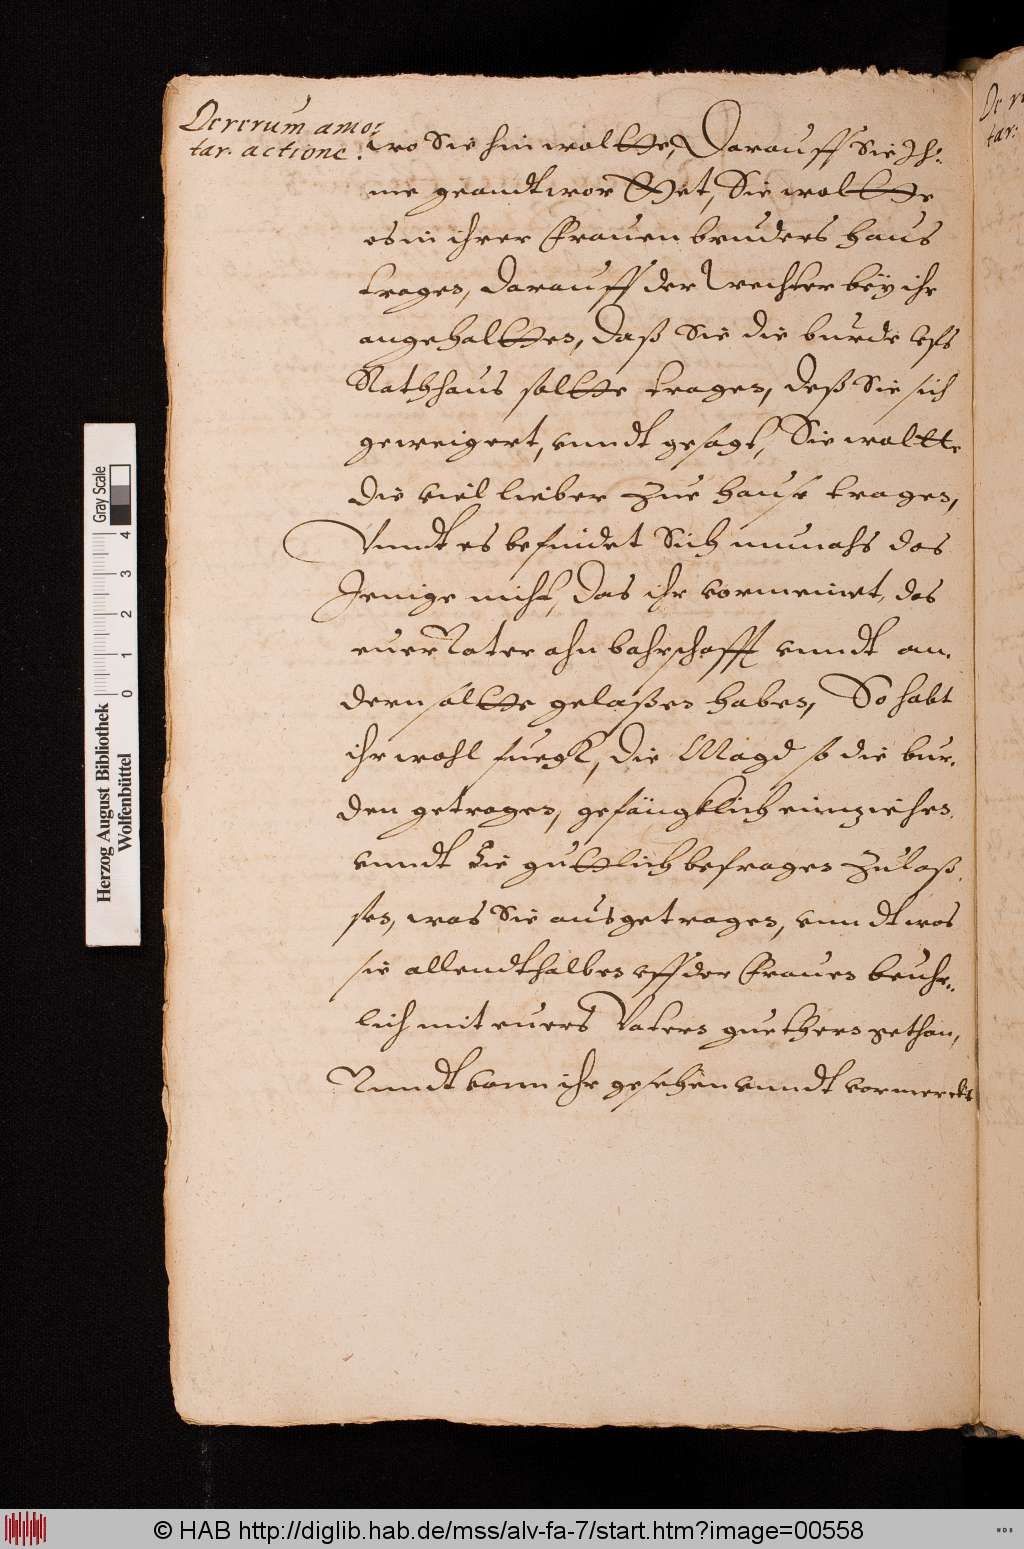 De rerum amo:
tar. actione.
wo Sie hin woltte, Darauff Sie Jh:
me geandtworttet, Sie woltte
es in ihrer Frauen bruders haus
tragen, Darauff der Wechter bey ihr
angehaltten, Daß Sie die burde vfs
Rathhaus soltte tragen, deß Sie sich
geweigert, vnndt gesagt, Sie woltte
die viel lieber zue hause tragen,
Vnndt es befindet Sich nunahs das
Jenige nicht, Das ihr vormeinet, das
euer Vater ahn bahrschafft vnndt an,
dern soltte gelaßen haben, So habt
ihr wohl fueg, Die Magd so die bur,
den getragen, gefängklich einziehen,
vnndt Sie guttlich befragen zulaß,
sen, was Sie ausgetragen, vnndt was
sie allendthalben vff der Frauen
lich mit euers Vaters guethern gethan,
Vnndt wann ihr gesehen vnndt vormerckt
Herzog August Bibliothek
Wolfenbüttel
0 1 2 3 4
Gray Scale
© HAB http://diglib.hab.de/mss/alv-fa-7/start.htm?image=00558